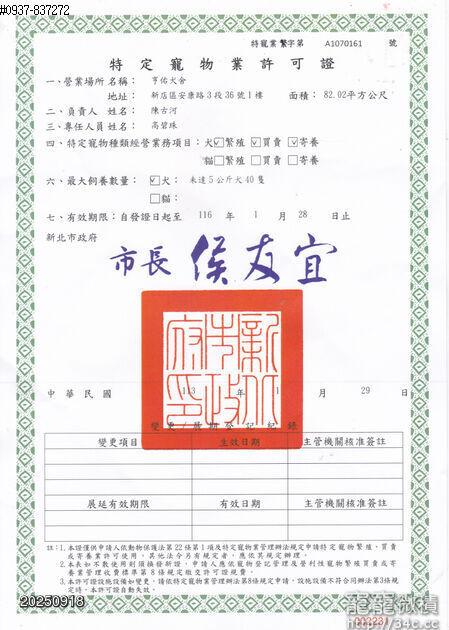 #0937-837272
特寵業繁字第 A1070161 號
特定寵物業許可證
一、營業場所名稱： 亨佑犬舍
地址： 新店區安康路3段36號1樓 面積：82.02平方公尺
二、負責人姓名： 陳古河
三、專任人員姓名： 高碧珠
四、特定寵物種類經營業務項目： 犬☑繁殖 ☑買賣 ☑寄養
貓□繁殖 □買賣 □寄養
六、最大飼養數量： ☑犬： 未達5公斤犬40隻
□貓：
七、有效期限：自發證日起至 116 年 1 月 28 日止
新北市政府
市長 侯友宜
新北市政府印
中華民國 113 年 1 月 29 日
變更/展期登記紀錄
變更項目 生效日期 主管機關核准簽註
展延有效期限 有效日期 主管機關核准簽註
註：1.本證僅供申請人依動物保護法第22條第1項及特定寵物業管理辦法規定申請特定寵物繁殖、買賣
或寄養業許可使用，其他法令另有規定者，應依其規定辦理。
2.本表如不敷使用則須換發新證，申請人應依寵物登記管理及營利性寵物繁殖買賣或寄
養業管理收費標準第8條規定繳交許可證規費。
3.本許可證設施設備如變更，請依特定寵物業管理辦法第8條規定申請，設施設備不符合同辦法第3條規
定時，本許可證自動失效。
20250918
002231
龍龍微積
https://34c.cc